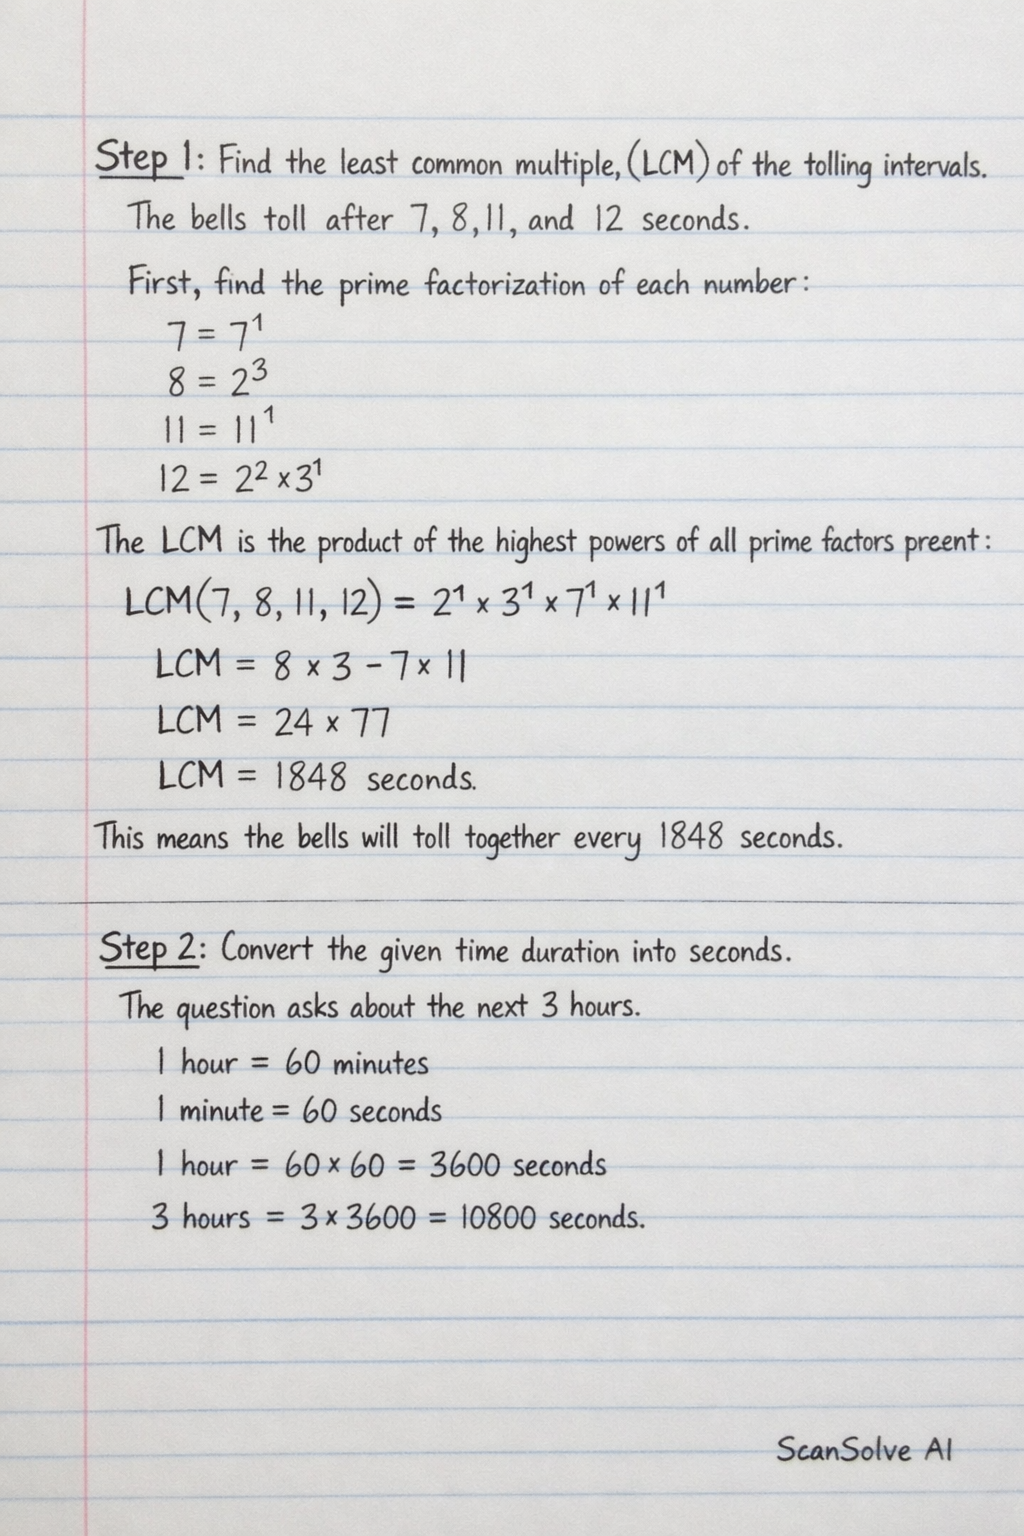 Step 1: Find the least common multiple, (LCM) of the tolling intervals.
The bells toll after 7, 8, 11, and 12 seconds.
First, find the prime factorization of each number:
7 = 7¹
8 = 2³
11 = 11¹
12 = 2² × 3¹
The LCM is the product of the highest powers of all prime factors preent:
LCM(7, 8, 11, 12) = 2¹ × 3¹ × 7¹ × 11¹
LCM = 8 × 3 - 7 × 11
LCM = 24 × 77
LCM = 1848 seconds.
This means the bells will toll together every 1848 seconds.
Step 2: Convert the given time duration into seconds.
The question asks about the next 3 hours.
1 hour = 60 minutes
1 minute = 60 seconds
1 hour = 60 × 60 = 3600 seconds
3 hours = 3 × 3600 = 10800 seconds.
ScanSolve AI